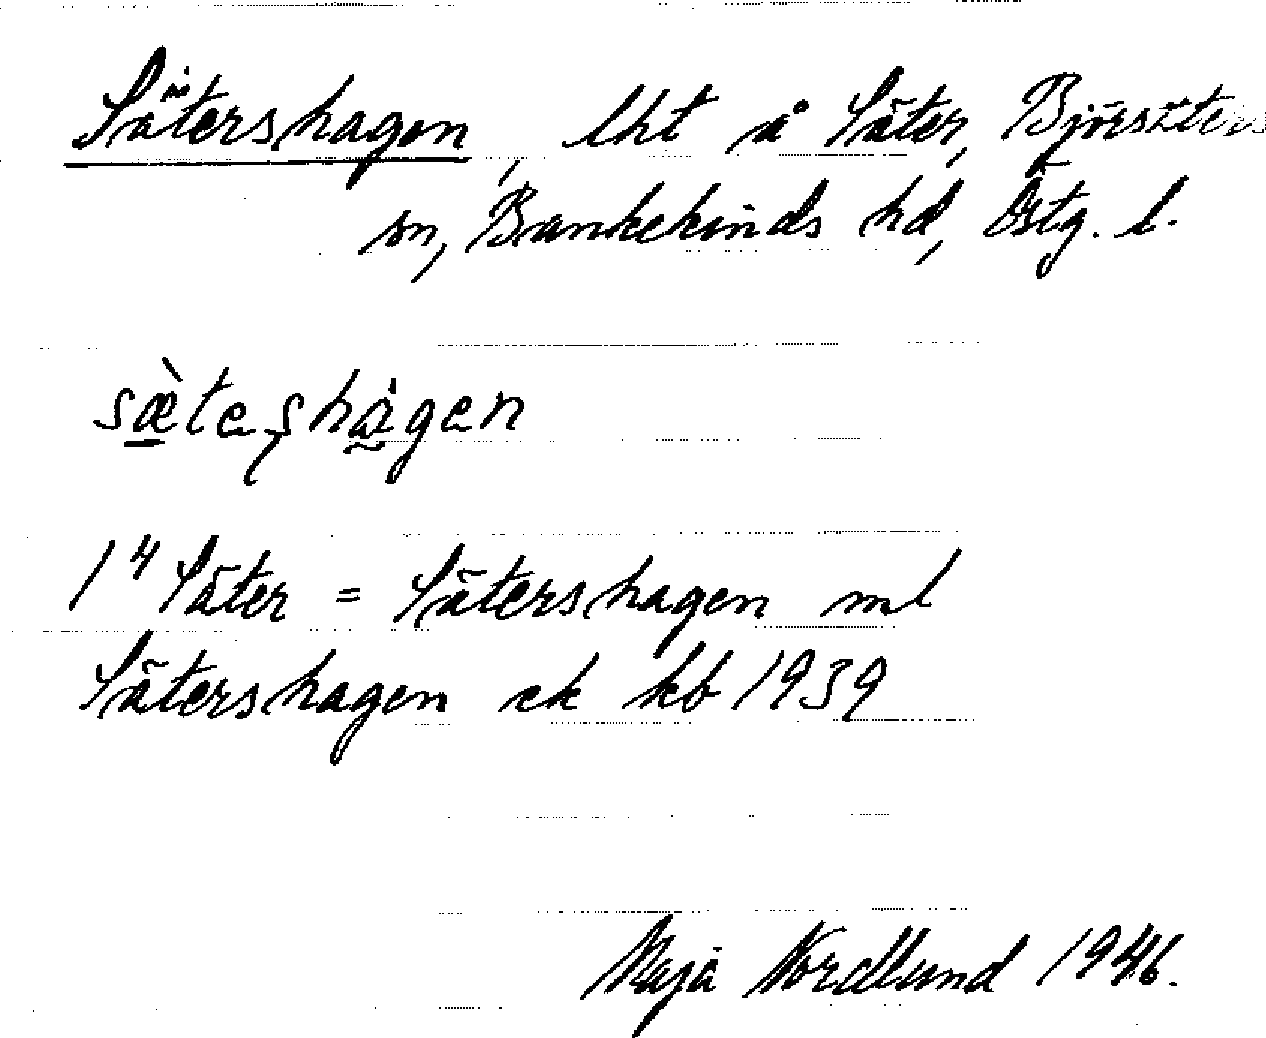 Sätershagen, lht å Säter, Björsäters
sn, Bankekinds hd, Östg. l.
sæ̀teʂhȧgen
1⁴ Säter = Sätershagen ml
Sätershagen ek kb 1939
Maja Nordlund 1946.